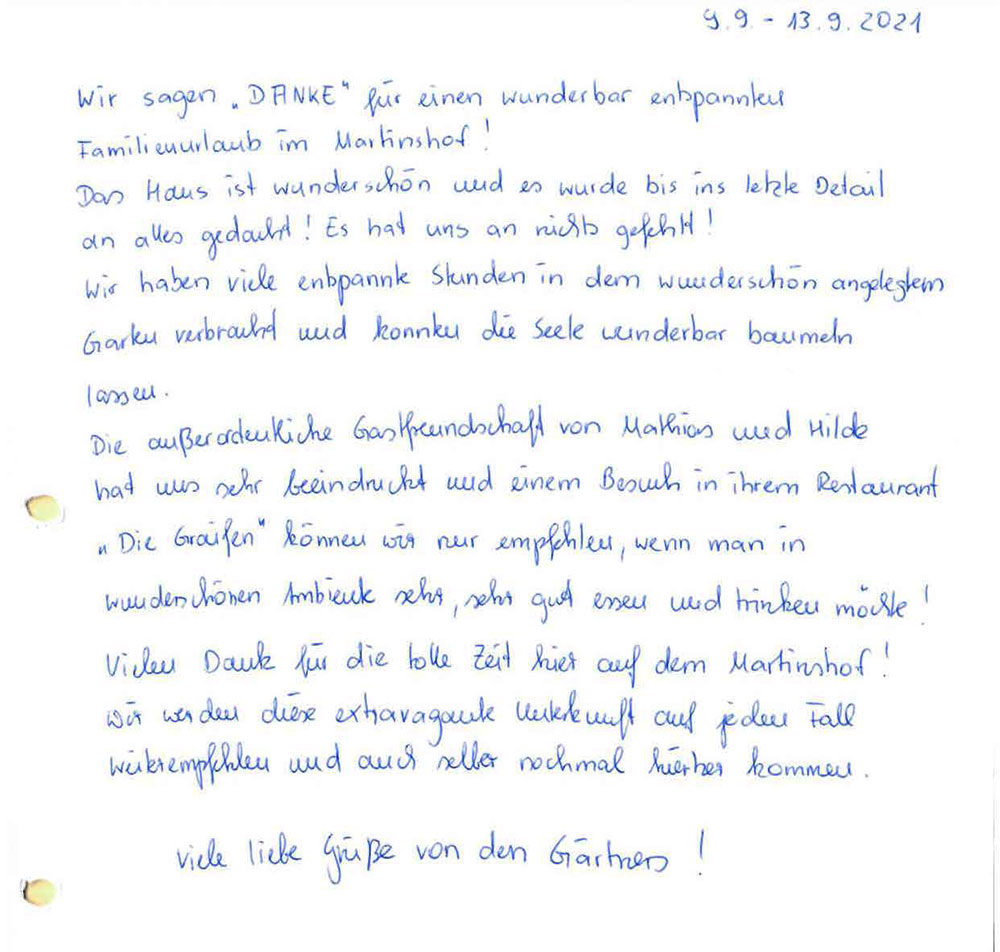 9.9. - 13.9.2021
Wir sagen „DANKE" für einen wunderbar entspannten
Familienurlaub im Martinshof!
Das Haus ist wunderschön und es wurde bis ins letzte Detail
an alles gedacht! Es hat uns an nichts gefehlt!
Wir haben viele entspannte Stunden in dem wunderschön angelegtem
Garten verbracht und konnten die Seele wunderbar baumeln
lassen.
Die außerordentliche Gastfreundschaft von Mathias und Hilde
hat uns sehr beeindruckt und einem Besuch in ihrem Restaurant
„Die Greifen" können wir nur empfehlen, wenn man in
wunderschönen Ambiente sehr, sehr gut essen und trinken möchte!
Vielen Dank für die tolle Zeit hier auf dem Martinshof!
Wir werden diese extravagante Unterkunft auf jeden Fall
weiterempfehlen und auch selber nochmal hierher kommen.
Viele liebe Grüße von den Gärtners!